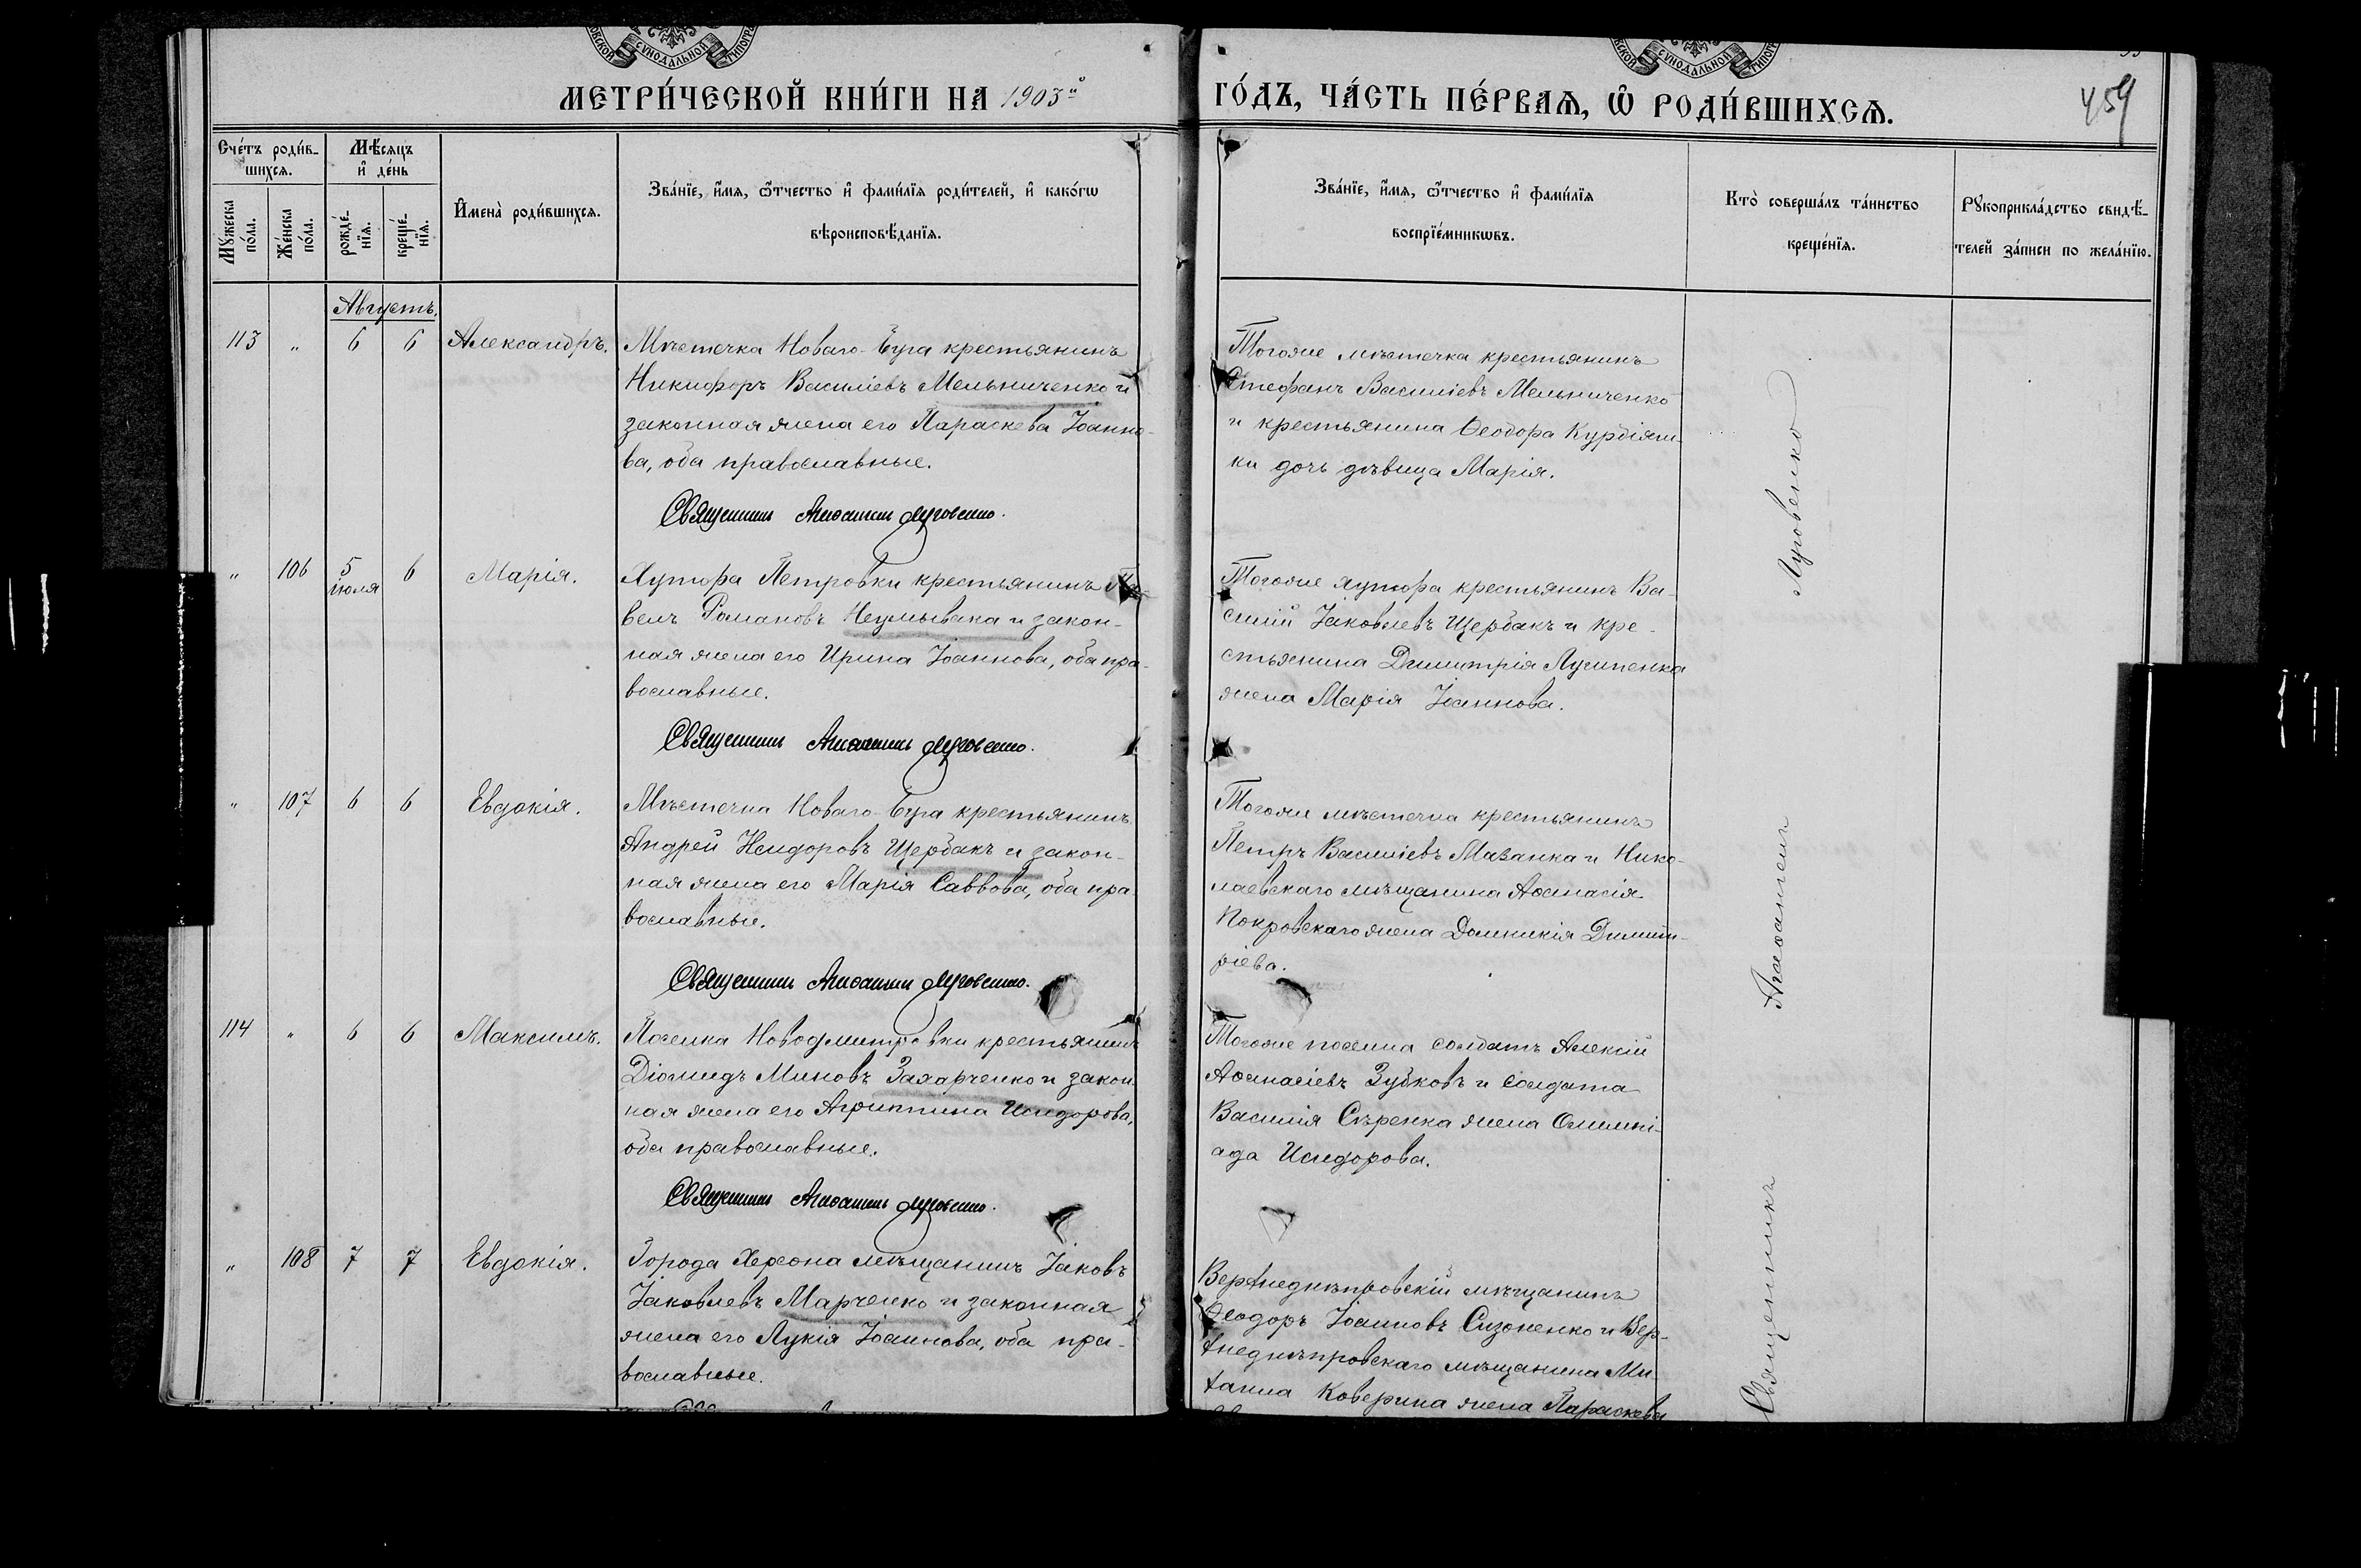 МЕТРИ́ЧЕСКОЙ КНИ́ГИ НА 1903й
ГО́ДЪ, ЧА́СТЬ ПЕ́РВАѦ, Ѡ РОДИ́ВШИХСѦ.
459
Сче́тъ роди́в-
шихсѧ.
Мѣ́сѧцъ
и҆ де́нь
Мꙋ́жеска
по́ла.
Же́нска
по́ла.
рожде́-
нїѧ.
креще́-
нїѧ.
И҆мена̀ роди́вшихсѧ.
Зва́нїе, и҆́мѧ, ѻ҆́тчество и҆ фами́лїѧ роди́телей, и҆ како́гѡ
вѣроисповѣ́данїѧ.
Зва́нїе, и҆́мѧ, ѻ҆́тчество и҆ фами́лїѧ
воспрїе́мникѡвъ.
Кто̀ соверша́лъ та́инство
креще́нїѧ.
Рꙋкоприкла́дство свидѣ́-
телей за́писи по жела́нїю.
Августъ.
113 „ 6 6 Александръ.
Мѣстечка Новаго-Буга крестьянинъ
Никифоръ Василіевъ Мельниченко и
законная жена его Параскева Іоанно-
ва, оба православные.
Священникъ Аѳанасій Луговенко.
Тогоже мѣстечка крестьянинъ
Стефанъ Василіевъ Мельниченко
и крестьянина Ѳеодора Курдіяш-
ки дочь дѣвица Марія.
„ 106 5 іюля 6 Марія.
Хутора Петровки крестьянинъ Па-
велъ Романовъ Неумывака и закон-
ная жена его Ирина Іоаннова, оба пра-
вославные.
Священникъ Аѳанасій Луговенко.
Тогоже хутора крестьянинъ Ва-
силій Іаковлевъ Щербакъ и кре-
стьянина Димитрія Лущпенка
жена Марія Іоаннова.
„ 107 6 6 Евдокія.
Мѣстечка Новаго-Буга крестьянинъ
Андрей Исидоровъ Щербакъ и закон-
ная жена его Марія Саввова, оба пра-
вославные.
Священникъ Аѳанасій Луговенко.
Тогоже мѣстечка крестьянинъ
Петръ Василіевъ Мазанка и Нико-
лаевскаго мѣщанина Аѳанасія
Покровскаго жена Домникія Димит-
ріева.
114 „ 6 6 Максимъ.
Поселка Новодмитровки крестьянинъ
Діомидъ Миновъ Захарченко и закон-
ная жена его Агриппина Исидорова,
оба православные.
Священникъ Аѳанасій Луговенко.
Тогоже поселка солдатъ Алексій
Аѳанасіевъ Зубковъ и солдата
Василія Сѣренка жена Олимпі-
ада Исидорова.
„ 108 7 7 Евдокія.
Города Херсона мѣщанинъ Іаковъ
Іаковлевъ Марченко и законная
жена его Лукія Іоаннова, оба пра-
вославные.
Верхнеднѣпровскій мѣщанинъ
Ѳеодоръ Іоанновъ Сизоненко и Вер-
хнеднѣпровскаго мѣщанина Ми-
хаила Коверина жена Параскева
Священникъ Аѳанасій Луговенко